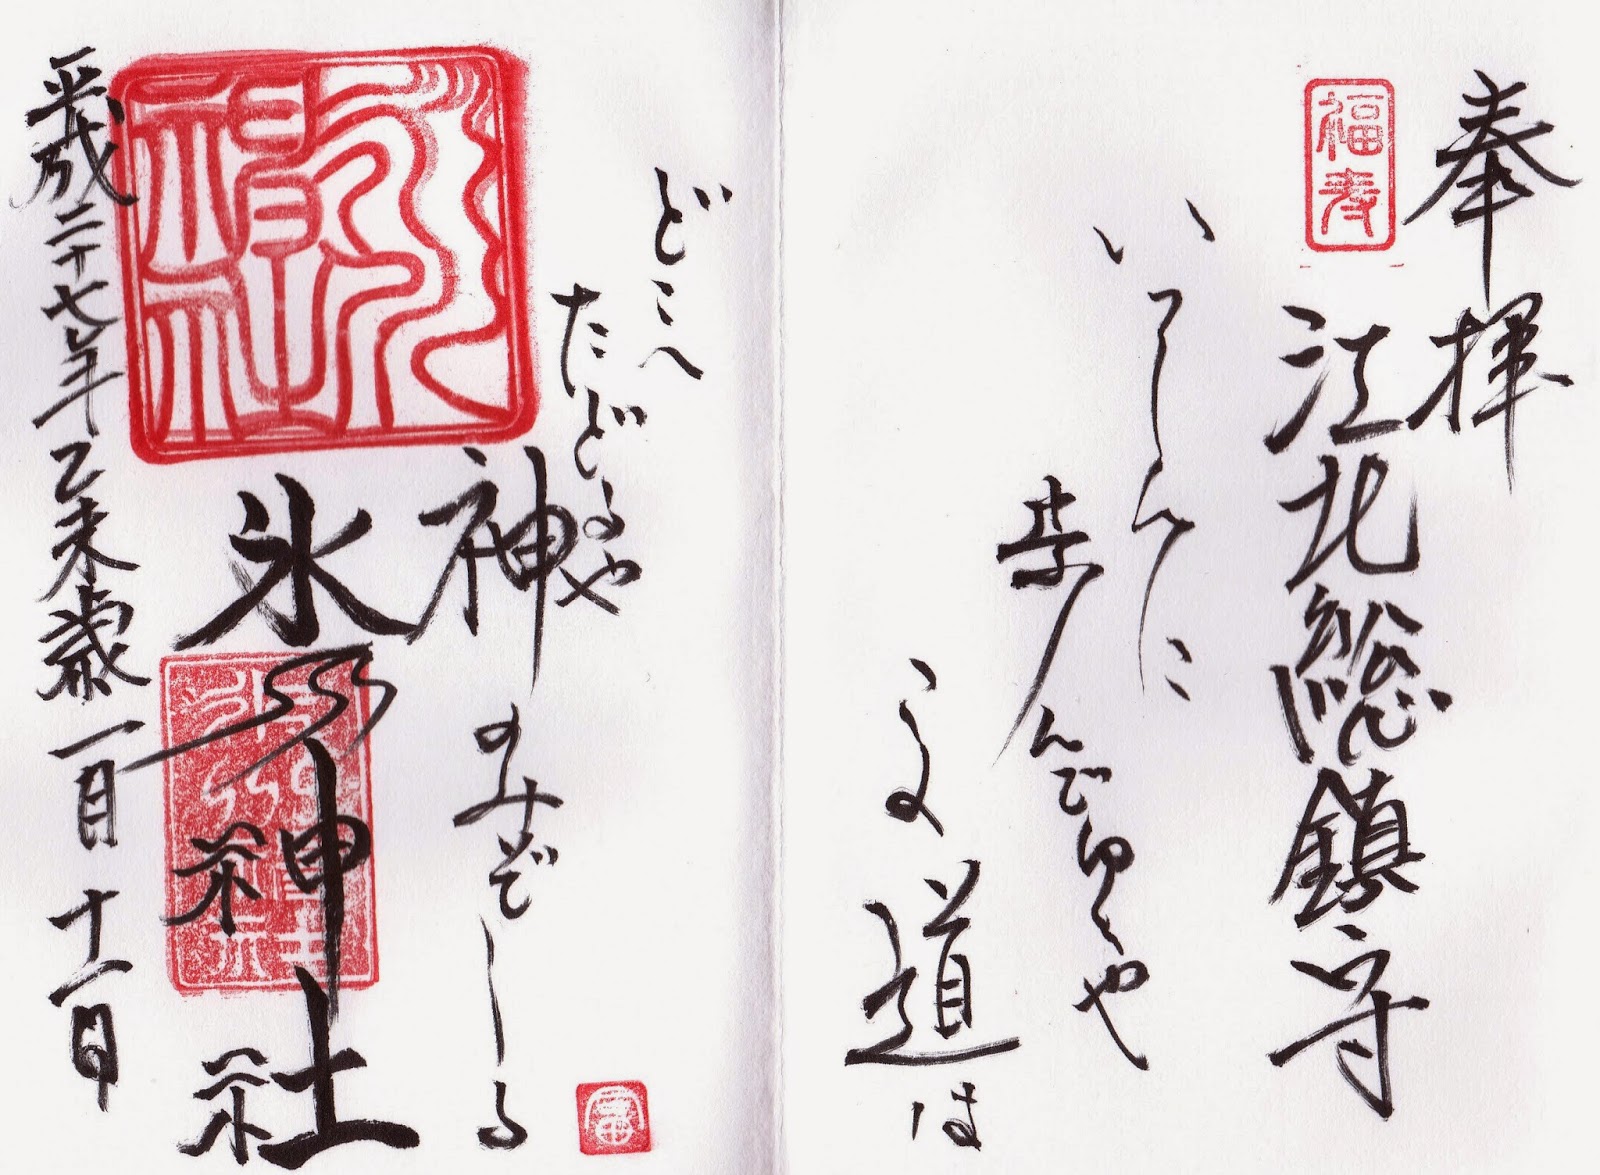 奉拝
福寿
江北総鎮守
いっしんに
歩んでゆくや
この道は
どこへ
たどるや
神のみぞしる
氷川神社
平成二十七年乙未歳一月十一日